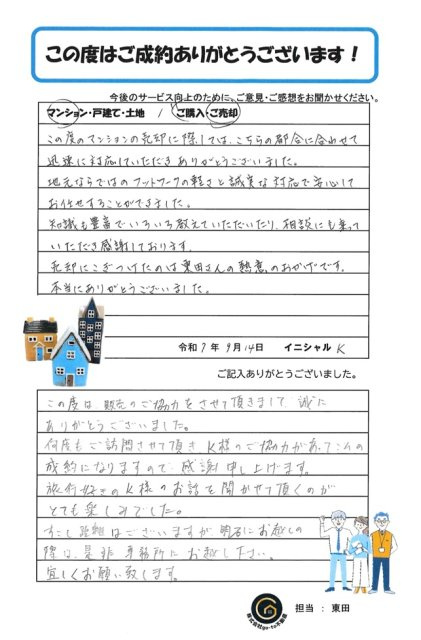 この度はご成約ありがとうございます！
今後のサービス向上のために、ご意見・ご感想をお聞かせください。
マンション・戸建て・土地 / ご購入・ご売却
この度のマンションの売却に際しては、こちらの都合に合わせて
迅速に対応していただきありがとうございました。
地元ならではのフットワークの軽さと誠実な対応で安心して
お任せすることができました。
知識も豊富でいろいろ教えていただいたり、相談にも乗って
いただき感謝しております。
売却にこぎつけたのは東田さんの熱意のおかげです。
本当にありがとうございました。
令和7年9月14日 イニシャル K
ご記入ありがとうございました。
この度は販売のご協力をさせて頂きまして、誠に
ありがとうございました。
何度もご訪問させて頂きK様のご協力があってこその
成約になりますので感謝申し上げます。
旅行好きのK様のお話を聞かせて頂くのが
とても楽しみでした。
すこし距離はございますが、明石にお越しの
際は、是非事務所にお越し下さい。
宜しくお願い致します。
株式会社go-to不動産
担当：東田